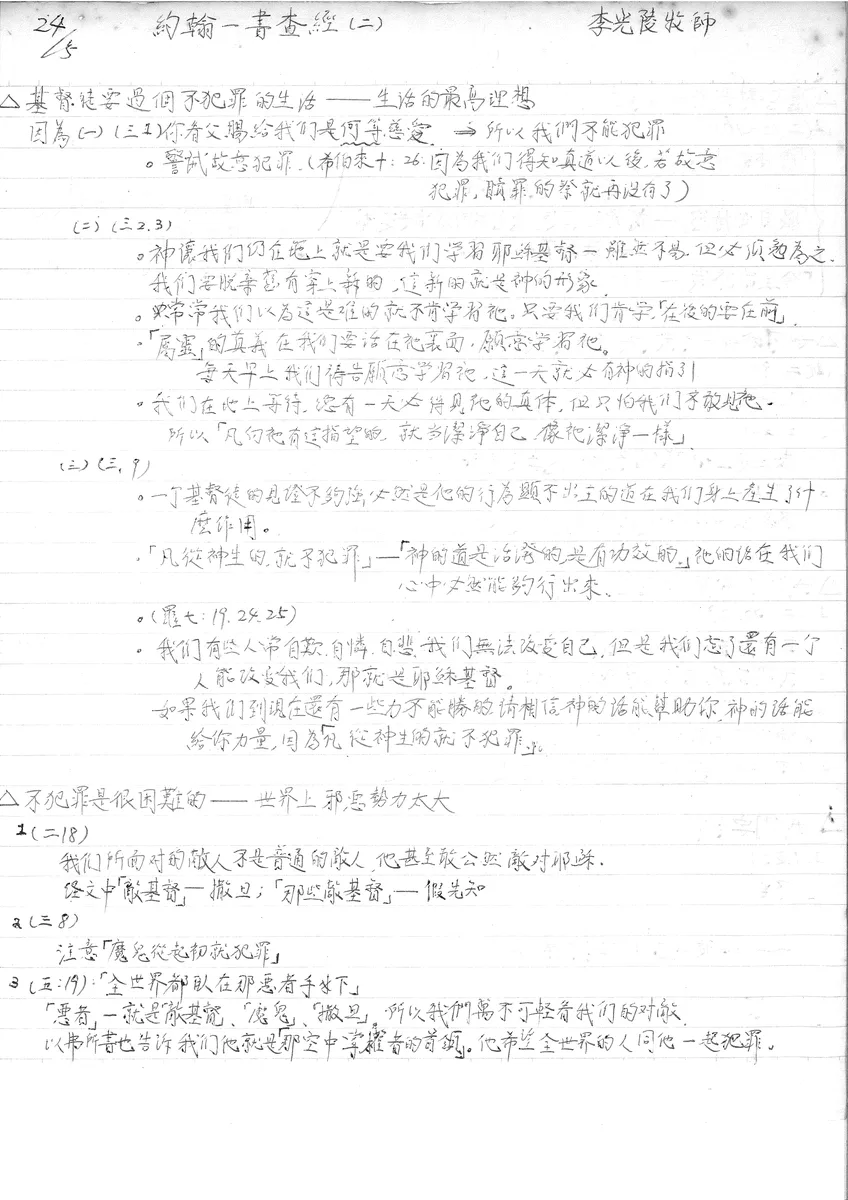 24/5 約翰一書查經(二) 李光陵牧師
△基督徒要過個不犯罪的生活——生活的最高理想
因為(一)(三1)你看父賜給我们是何等慈愛 ⇒ 所以我們不能犯罪
。嘗試故意犯罪.(希伯來十:26:因為我们得知真道以後,若故意
犯罪,贖罪的祭就再沒有了)
(二)(三2.3)
。神讓我们仍在地上就是要我们学習耶穌基督—雖然不易,但必須勉為之.
我们要脱棄舊有穿上新的,这新的就是神的形象.
。常常我们以為這是难的就不肯学習祂。只要我们肯学,「在後的要在前」
·「屬靈」的真義在我们要活在祂裏面,願意学習祂。
每天早上我们禱告願意学習祂,這一天就必有神的指引
·我们在地上等待,總有一天必得見祂的真体,但只怕我们不敢見祂.
所以「凡向祂有这指望的,就当潔淨自己,像祂潔淨一樣」
(三)(三,9)
。一个基督徒的見證不夠強必然是他的行為顯不出主的道在我们身上產生了什
麽作用。
·「凡從神生的,就不犯罪」—「神的道是活潑的,是有功效的。」祂的話在我们
心中必然能夠行出來.
。(羅七:19.24.25)
·我们有些人常自欺.自憐.自悲,我们無法改变自己,但是我们忘了還有一个
人能改变我们,那就是耶穌基督。
如果我们到現在還有一些力不能勝的請相信神的话能幫助你,神的话能
給你力量,因為「凡從神生的就不犯罪」。
△不犯罪是很困難的——世界上邪惡勢力太大
1(二18)
我们所面对的敵人不是普通的敵人,他甚至敢公然敵对耶穌.
經文中「敵基督」—撒旦;「那些敵基督」—假先知
2(三8)
注意「魔鬼從起初就犯罪」
3(五:19):「全世界都臥在那惡者手下」
「悪者」—就是「敵基督」、「魔鬼」、「撒旦」.所以我們萬不可輕看我们的对敵.
以弗所書也告诉我们他就是「那空中掌權者的首領」。他希望全世界的人同他一起犯罪。